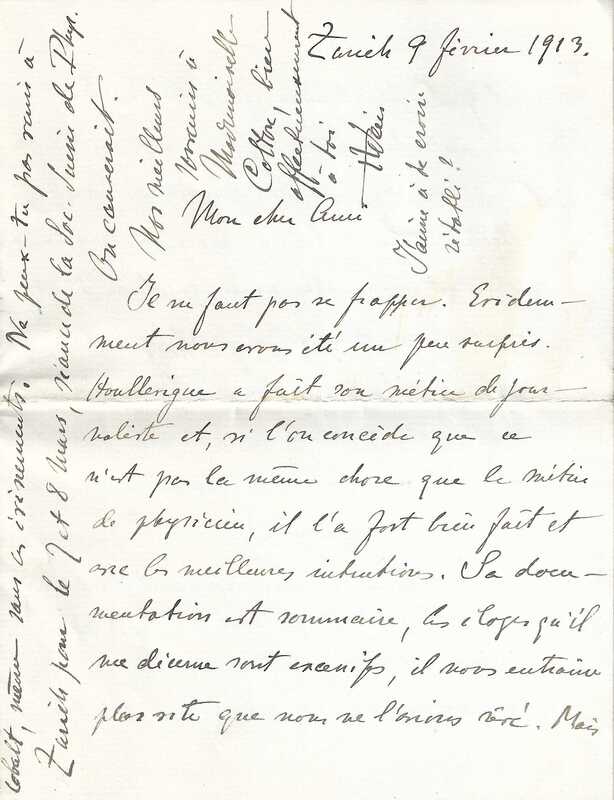 Zurich 9 février 1913.
Mon cher Ami
Il ne faut pas se frapper. Evidem-
ment nous avons été un peu surpris.
Houllevigue a fait son métier de jour-
naliste et, si l'on concède que ce
n'est pas la même chose que le métier
de physicien, il l'a fort bien fait et
avec les meilleures intentions. Sa docu-
mentation est sommaire, les éloges qu'il
me décerne sont excessifs, il nous entraine
plus vite que nous ne l'avions rêvé. Mais
cobalt, même sans ces évènements. Ne peux-tu pas venir à
Zurich pour le 7 et 8 mars, séance de la Soc. Suisse de Phys.
On causerait.
Nos meilleurs
souvenirs à
Mademoiselle
Cotton, bien
affectueusement
à toi
PWeiss
J'aime à te croire
rétabli?